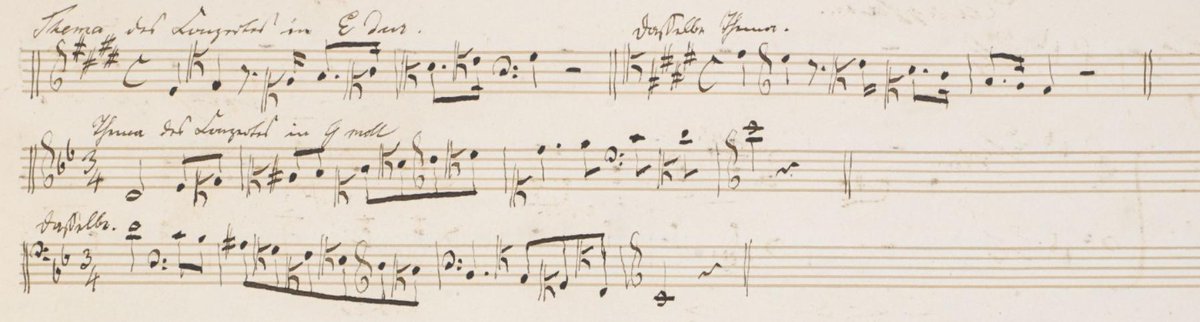 Thema des Konzertes in E dur.
Dasselbe Thema.
Thema des Konzertes in G moll
3/4
Dasselbe.
3/4